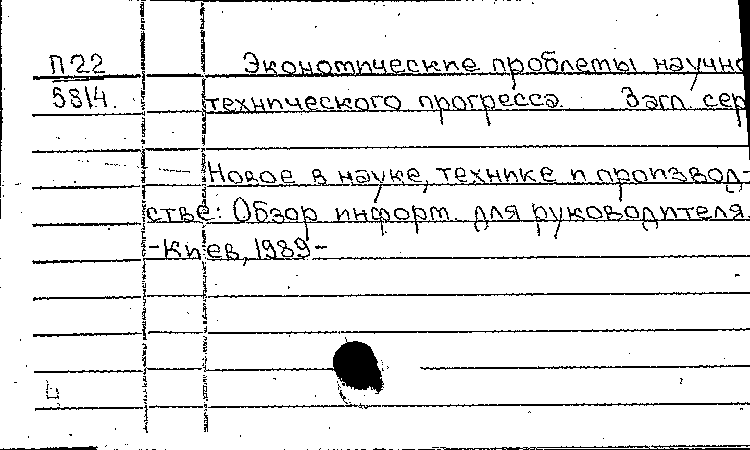 П22 Экономические проблемы научно
5814. технического прогресса Загл сер
Новое в науке, технике и производ-
стве: Обзор информ. для руководителя.
-Киев, 1989-
4